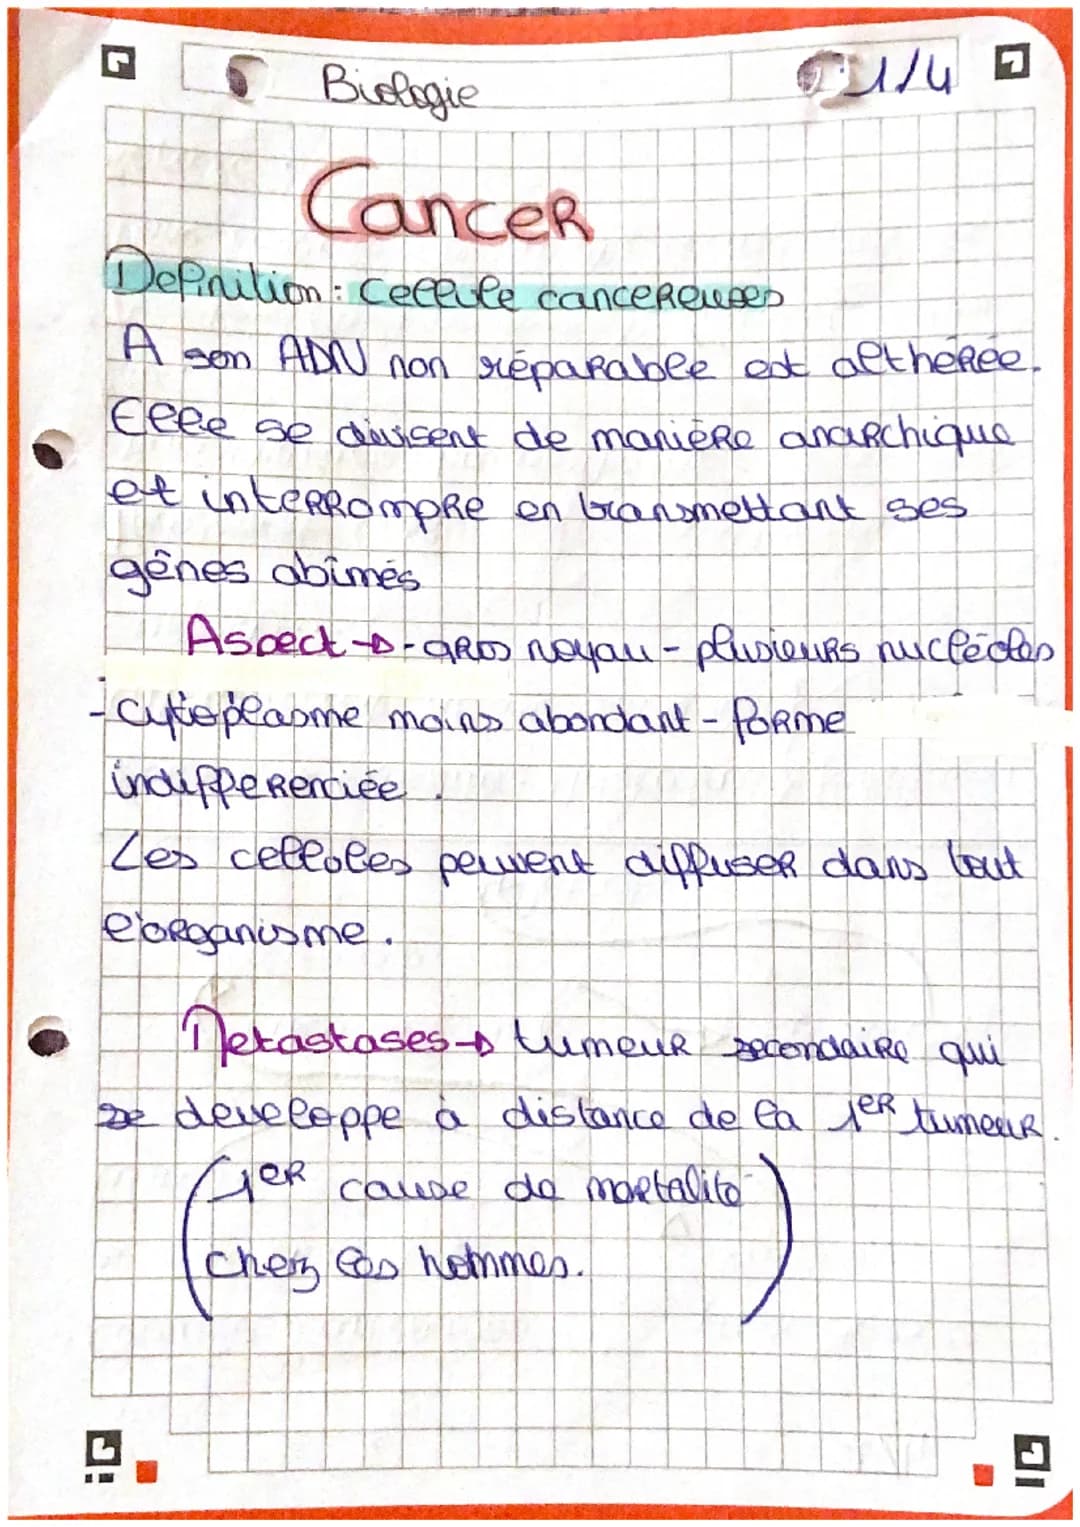 Biologie
1/4
Cancer
Definition : cellule cancereuses
A son ADN non réparable est altherée.
Elle se divisent de manière anarchique
et interrompre en transmettant ses
gênes abîmés
Aspect → - gros noyau - plusieurs nucléoles
- cytoplasme moins abondant - forme
indifferenciée .
Les celloles peuvent diffuser dans tout
l'organisme .
Metastases → tumeur secondaire qui
se developpe à distance de la 1er tumeur.
(1er cause de mortalité
chez les hommes.)